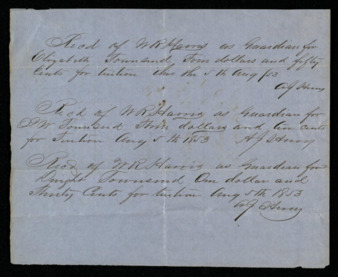 Recd of W R Harris as Guardian for
Elizabeth Townsend, Four dollars and fifty
Cents for tuition this the 5th Aug 53
A J Henry
Recd of W R Harris as Guardian for
P W Townsend Three dollars and ten cents
for Tuition Aug 5th 1853 A J Henry
Recd of W R Harris as Guardian for
Townsend One dollar and
Ninety Cents for tuition Aug 5th 1853
A J Henry